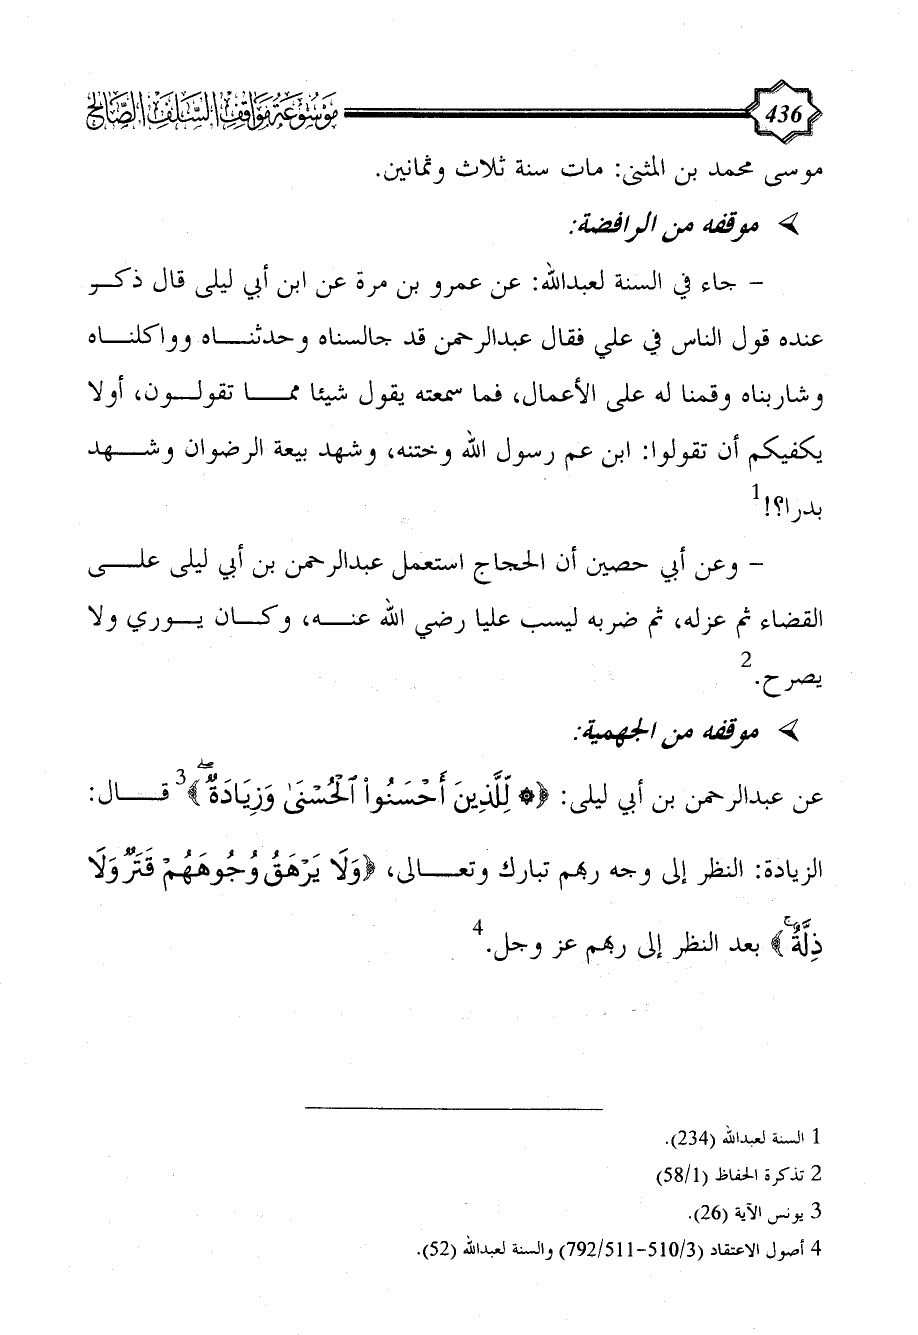 436 موسوعة مواقف السلف الصالح
موسى محمد بن المثنى: مات سنة ثلاث وثمانين.
موقفه من الرافضة:
- جاء في السنة لعبدالله: عن عمرو بن مرة عن ابن أبي ليلى قال ذكر
عنده قول الناس في علي فقال عبدالرحمن قد جالسناه وحدثناه وواكلناه
وشاربناه وقمنا له على الأعمال، فما سمعته يقول شيئا مما تقولون، أولا
يكفيكم أن تقولوا: ابن عم رسول الله وختنه، وشهد بيعة الرضوان وشهد
بدرا؟!1
- وعن أبي حصين أن الحجاج استعمل عبدالرحمن بن أبي ليلى على
القضاء ثم عزله، ثم ضربه ليسب عليا رضي الله عنه، وكان يوري ولا
يصرح.2
موقفه من الجهمية:
عن عبدالرحمن بن أبي ليلى: ﴿۞ لِّلَّذِينَ أَحْسَنُواْ ٱلْحُسْنَىٰ وَزِيَادَةٌۖ﴾3 قال:
الزيادة: النظر إلى وجه ربهم تبارك وتعالى، ﴿وَلَا يَرْهَقُ وُجُوهَهُمْ قَتَرٌ وَلَا
ذِلَّةٌۚ﴾ بعد النظر إلى ربهم عز وجل.4
1 السنة لعبدالله (234).
2 تذكرة الحفاظ (58/1)
3 يونس الآية (26).
4 أصول الاعتقاد (3/510-792/511) والسنة لعبدالله (52).